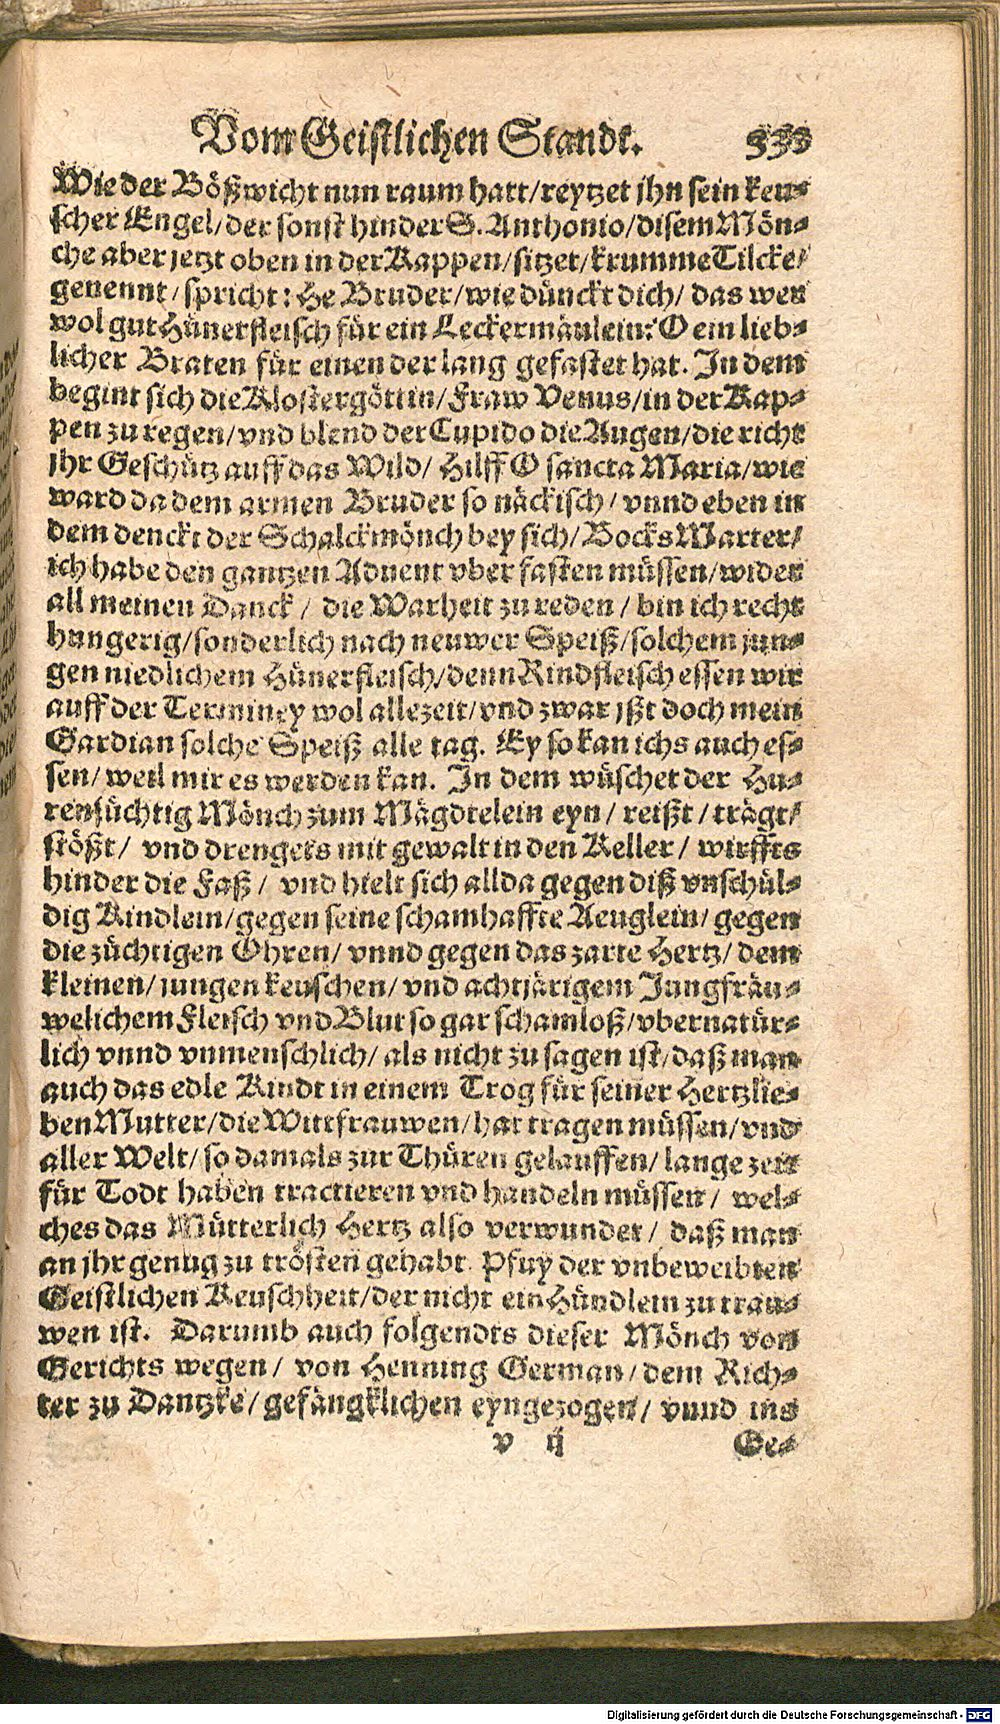 Vom Geistlichen Standt. 333
Wie der Bößwicht nun raum hatt/reytzet jhn sein keu-
scher Engel/der sonst hinder S. Anthonio/disem Mön-
che aber jetzt oben in der Kappen/sitzet/krumme Tilcke/
genennt/spricht: He Bruder/wie dünckt dich/das wer
wol gut Hünerfleisch für ein Leckermäulein: O ein lieb-
licher Braten für einen der lang gefastet hat. In dem
begint sich die Klostergöttin/Fraw Venus/in der Kap-
pen zu regen/vnd blend der Cupido die Augen/die richt
jhr Geschütz auff das Wild/ Hilff O sancta Maria/wie
ward da dem armen Bruder so näckisch/vnnd eben in
dem denckt der Schalckmönch bey sich/Bocks Marter/
ich habe den gantzen Aduent vber fasten müssen/wider
all meinen Danck/ die Warheit zu reden/bin ich recht
hungerig/sonderlich nach neuwer Speiß/solchem jun-
gen niedlichem Hünerfleisch/denn Rindfleisch essen wir
auff der Terminey wol allezeit/vnd zwar jßt doch mein
Gardian solche Speiß alle tag. Ey so kan ichs auch es-
sen/weil mir es werden kan. In dem wüschet der Hu-
rensüchtig Mönch zum Mägdtelein eyn/reißt/trägt/
stößt/ vnd drengets mit gewalt in den Keller/ wirffts
hinder die Faß/ vnd hielt sich allda gegen diß vnschül-
dig Kindlein/gegen seine schamhaffte Aeuglein/gegen
die züchtigen Ohren/vnnd gegen das zarte Hertz/dem
kleinen/jungen keuschen/vnd achtjärigem Jungfräu-
welichem Fleisch vnd Blut so gar schamloß/vbernatür-
lich vnnd vnmenschlich/als nicht zu sagen ist/daß man
auch das edle Kindt in einem Trog für seiner Hertzlie-
ben Mutter/die Wittfrauwen/hat tragen müssen/vnd
aller Welt/so damals zur Thüren gelauffen/lange zeit
für Todt haben tractieren vnd handeln müssen/ wel-
ches das Mütterlich Hertz also verwundet/ daß man
an jhr genug zu trösten gehabt. Pfuy der vnbeweibten
Geistlichen Keuschheit/der nicht ein Hündlein zu trau-
wen ist. Darumb auch folgendts dieser Mönch von
Gerichts wegen/ von Henning German/dem Rich-
ter zu Dantzke/gefängklichen eyngezogen/ vnnd ins
v ij Ge-
Digitalisierung gefördert durch die Deutsche Forschungsgemeinschaft - DFG